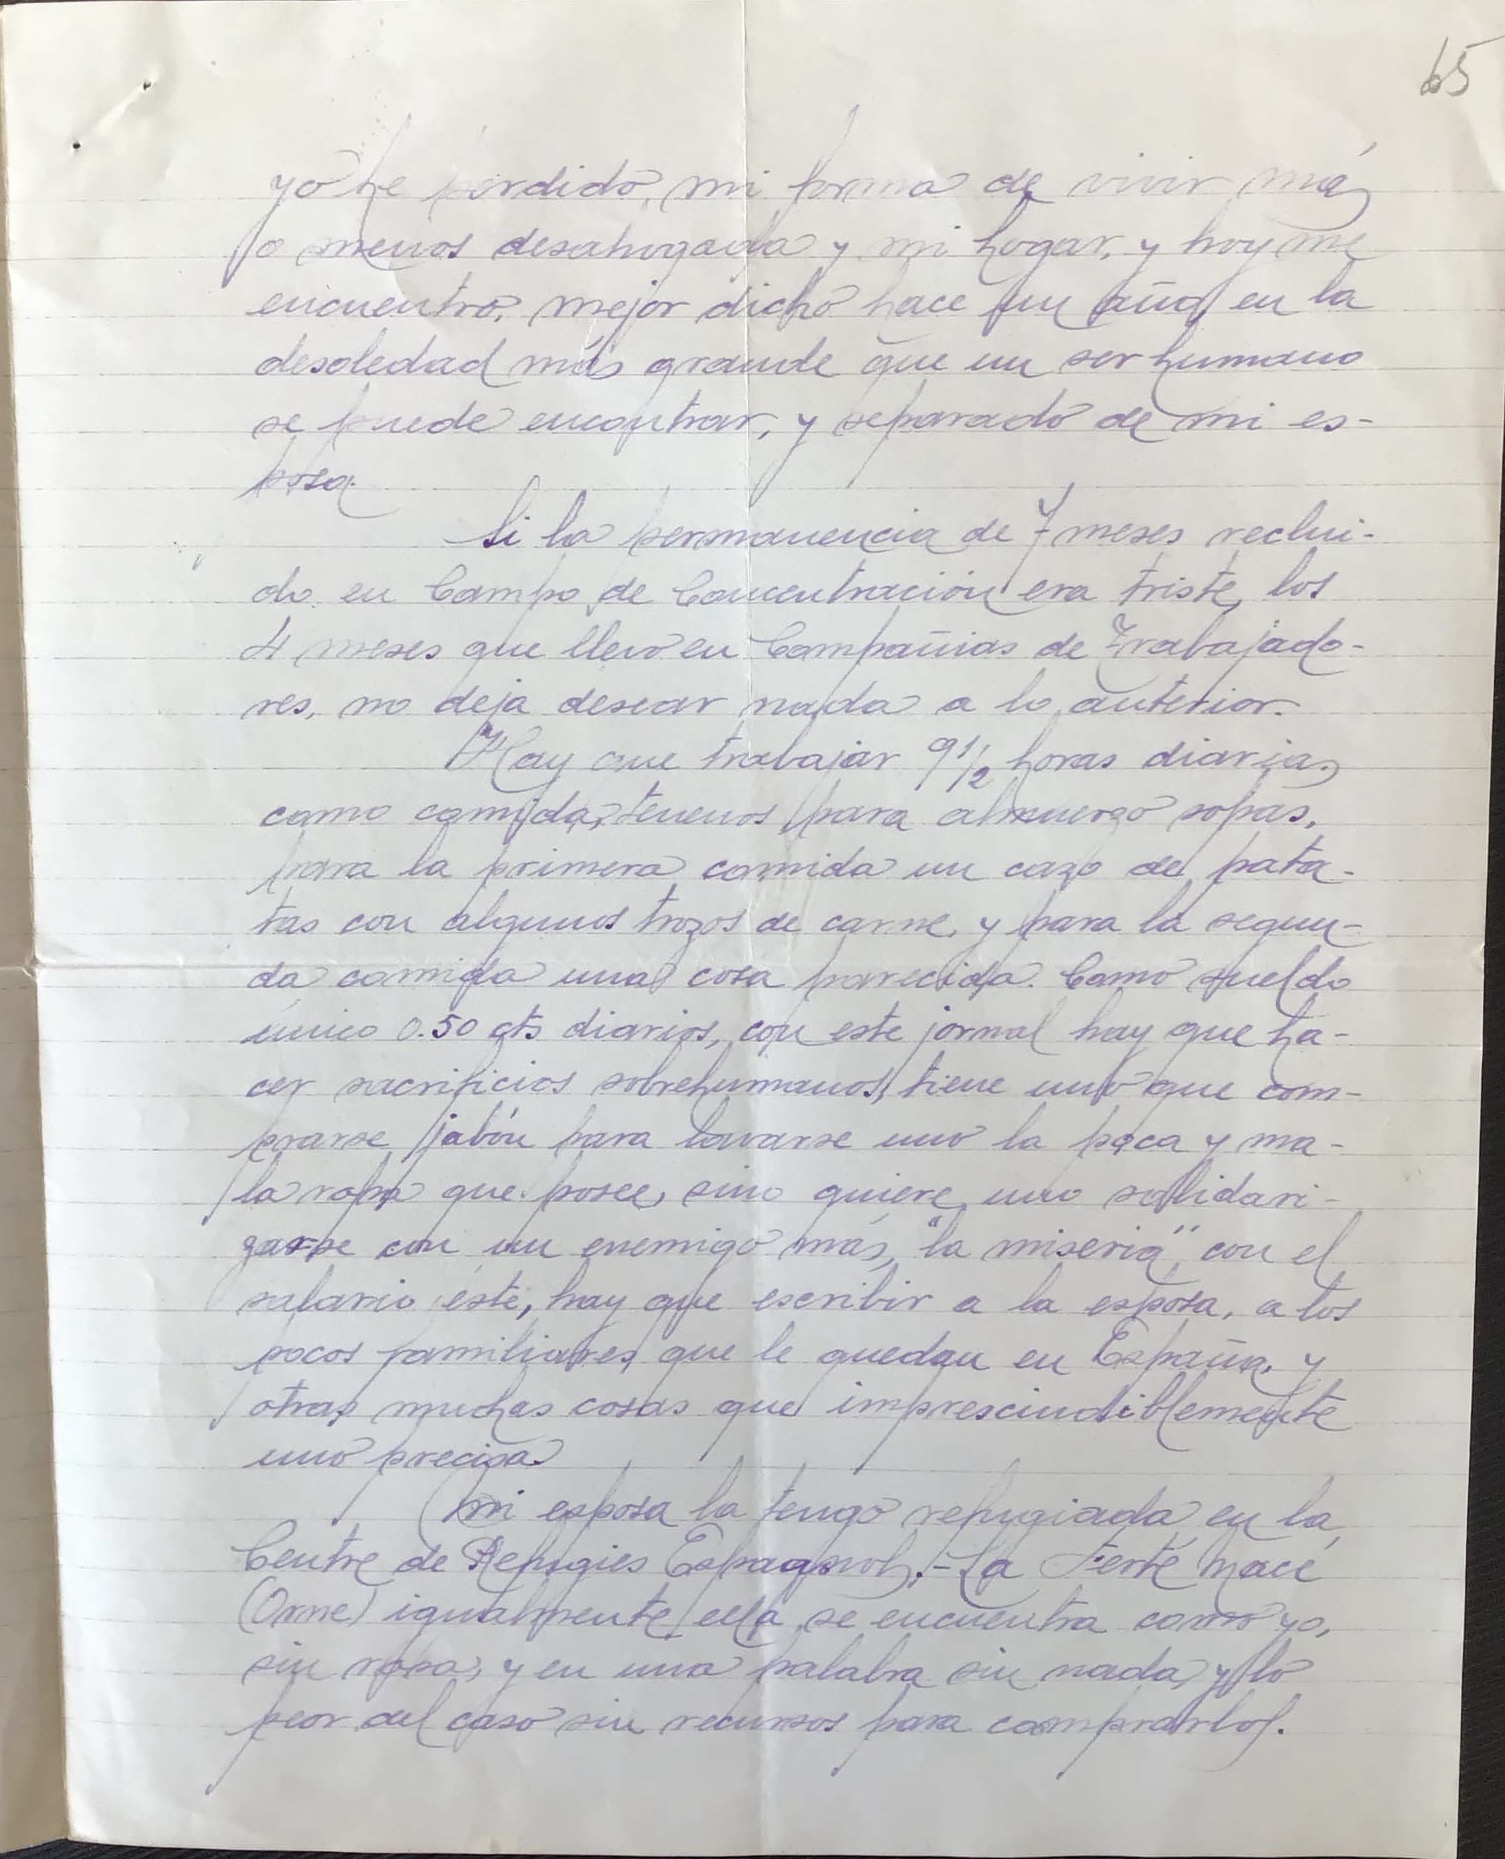 65
yo he perdido, mi forma de vivir más
o menos desahogada y mi hogar, y hoy me
encuentro, mejor dicho hace un año, en la
desoledad más grande que un ser humano
se puede encontrar, y separado de mi es-
posa.
Si la permanencia de 7 meses reclui-
do en Campo de Concentración era triste, los
4 meses que llevo en Compañias de Trabajado-
res, no deja desear nada a lo anterior.
Hay que trabajar 9 1/2 horas diarias,
como comida, tenemos para almuerzo sopas,
para la primera comida un cazo de pata-
tas con algunos trozos de carne, y para la segun-
da comida una cosa parecida. Como sueldo
único 0.50 cts diarios, con este jornal hay que ha-
cer sacrificios sobrehumanos, tiene uno que com-
prarse jabón para lavarse uno la poca y ma-
la ropa que posee, sino quiere uno solidari-
zarse con un enemigo más, "la miseria", con el
salario éste, hay que escribir a la esposa, a los
pocos familiares que le quedan en España, y
otras muchas cosas que imprescindiblemente
uno precisa.
Mi esposa la tengo refugiada en la
Centre de Refugies Espagnols.- La Ferté Macé
(Orne) igualmente ella se encuentra como yo,
sin ropa, y en una palabra sin nada y lo
peor del caso sin recursos para comprarlos.